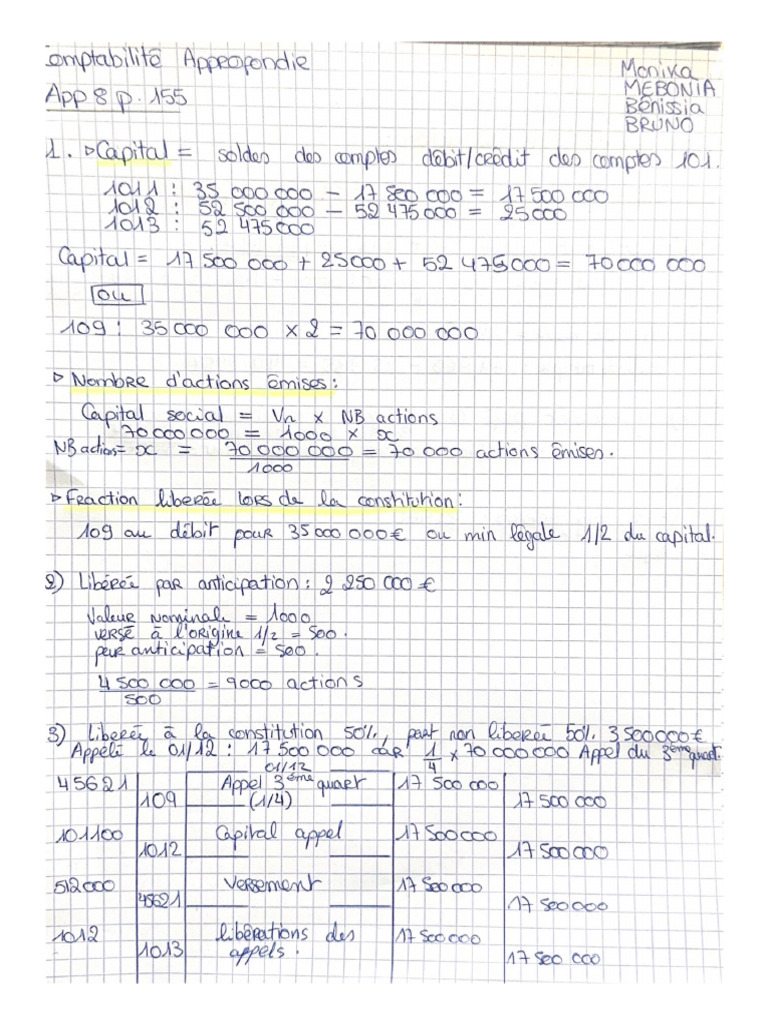 Comptabilité Approfondie
App 8 p. 155
Monika
MEBONIA
Bénissia
BRUNO
1. ▷ Capital = soldes des comptes débit/crédit des comptes 101.
1011 : 35 000 000 - 17 500 000 = 17 500 000
1012 : 52 500 000 - 52 475 000 = 25 000
1013 : 52 475 000
Capital = 17 500 000 + 25000 + 52 475 000 = 70 000 000
ou
109 : 35 000 000 x 2 = 70 000 000
▷ Nombre d'actions émises :
Capital social = Vn x NB actions
70 000 000 = 1000 x x
NB actions = x = 70 000 000 / 1000 = 70 000 actions émises.
▷ Fraction liberée lors de la constitution :
109 au débit pour 35 000 000 € ou min légale 1/2 du capital.
2) Libérée par anticipation : 2 250 000 €
Valeur nominale = 1000
versé à l'origine 1/2 = 500.
peur anticipation = 500.
4 500 000 / 500 = 9000 actions
3) Liberée à la constitution 50%, part non liberée 50%. 3 500 000 €
Appelé le 01/12 : 17 500 000 car 1/4 x 70 000 000 Appel du 3ème quart.
01/12
45621 Appel 3ème quart 17 500 000
109 (1/4) 17 500 000
101100 Capital appel 17 500 000
1012 17 500 000
512000 Versement 17 500 000
45621 17 500 000
1012 libérations des 17 500 000
1013 appels. 17 500 000